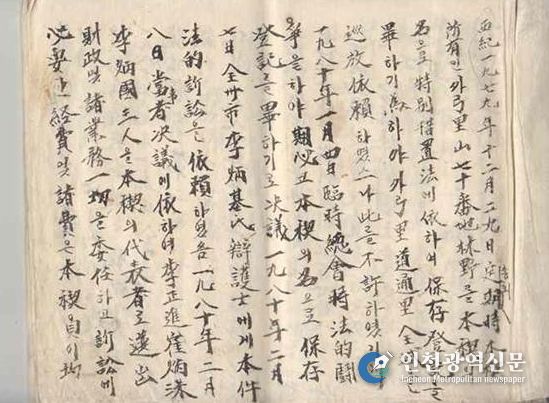 西紀一九七九年十二月二九日定期
所有인 外弓里山七十番地林野를 本稧
名으로 特別措置法에 依하여 保存登
畢하기 爲하야 外弓里 道通里
放依賴하였으나 此를 不許하
一九八十年一月四日臨時總會時法的鬪
爭을하야 期必고 本稧의名으로 保存
登記를 畢하기로 決議 一九八十年二月
七日全州市李炳基氏辯護士에게 本件
法的訴訟을 依賴하였음 一九八十年二月
八日當事者決議에依하여 李正進 崔炳洙
李炳國三人을 本稧의 代表者로 選出
財政및 諸業務一切을 委任하고 訴訟에
必要한 経費및 諸費은 本稧員이
인천광역신문
Incheon Metropolitan newspaper